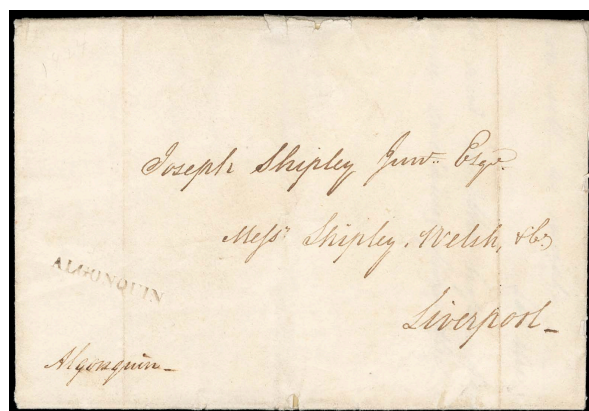 Joseph Shipley Junr. Esqr.
Messrs Shipley, Welsh, & Co,
Liverpool_
ALGONQUIN
Algonquin_